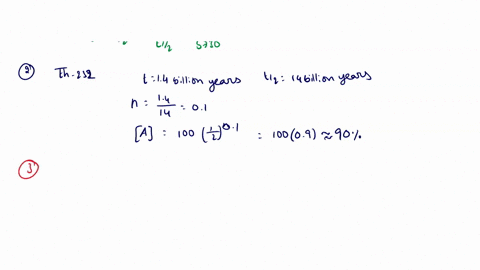 t1/2 5730
2) Th-232 t = 1.4 billion years t1/2 = 14 billion years
n = 1.4/14 = 0.1
[A] = 100 (1/2)^0.1 = 100(0.9) ≈ 90%
3)